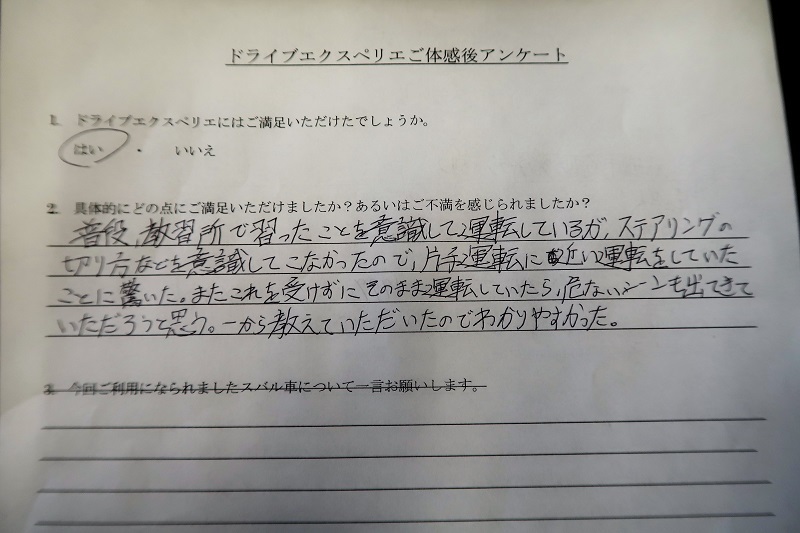 ドライブエクスペリエご体感後アンケート
1. ドライブエクスペリエにはご満足いただけたでしょうか。
はい ・ いいえ
2. 具体的にどの点にご満足いただけましたか？あるいはご不満を感じられましたか？
普段、教習所で習ったことを意識して運転しているが、ステアリングの
切り方などを意識してこなかったので、片手運転に近い運転をしていた
ことに驚いた。またこれを受けずにそのまま運転していたら、危ないシーンも出てきて
いただろうと思う。一から教えていただいたのでわかりやすかった。
3. 今回ご利用になられましたスバル車について一言お願いします。